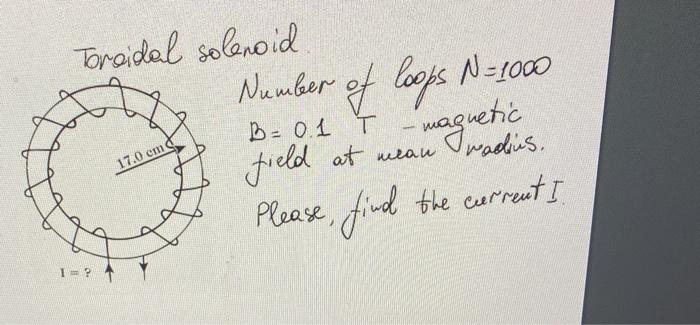 Toroidal solenoid
Number of loops N=1000
B=0.1 T - magnetic
field at mean radius.
17.0 cm
Please, find the current I.
I = ?